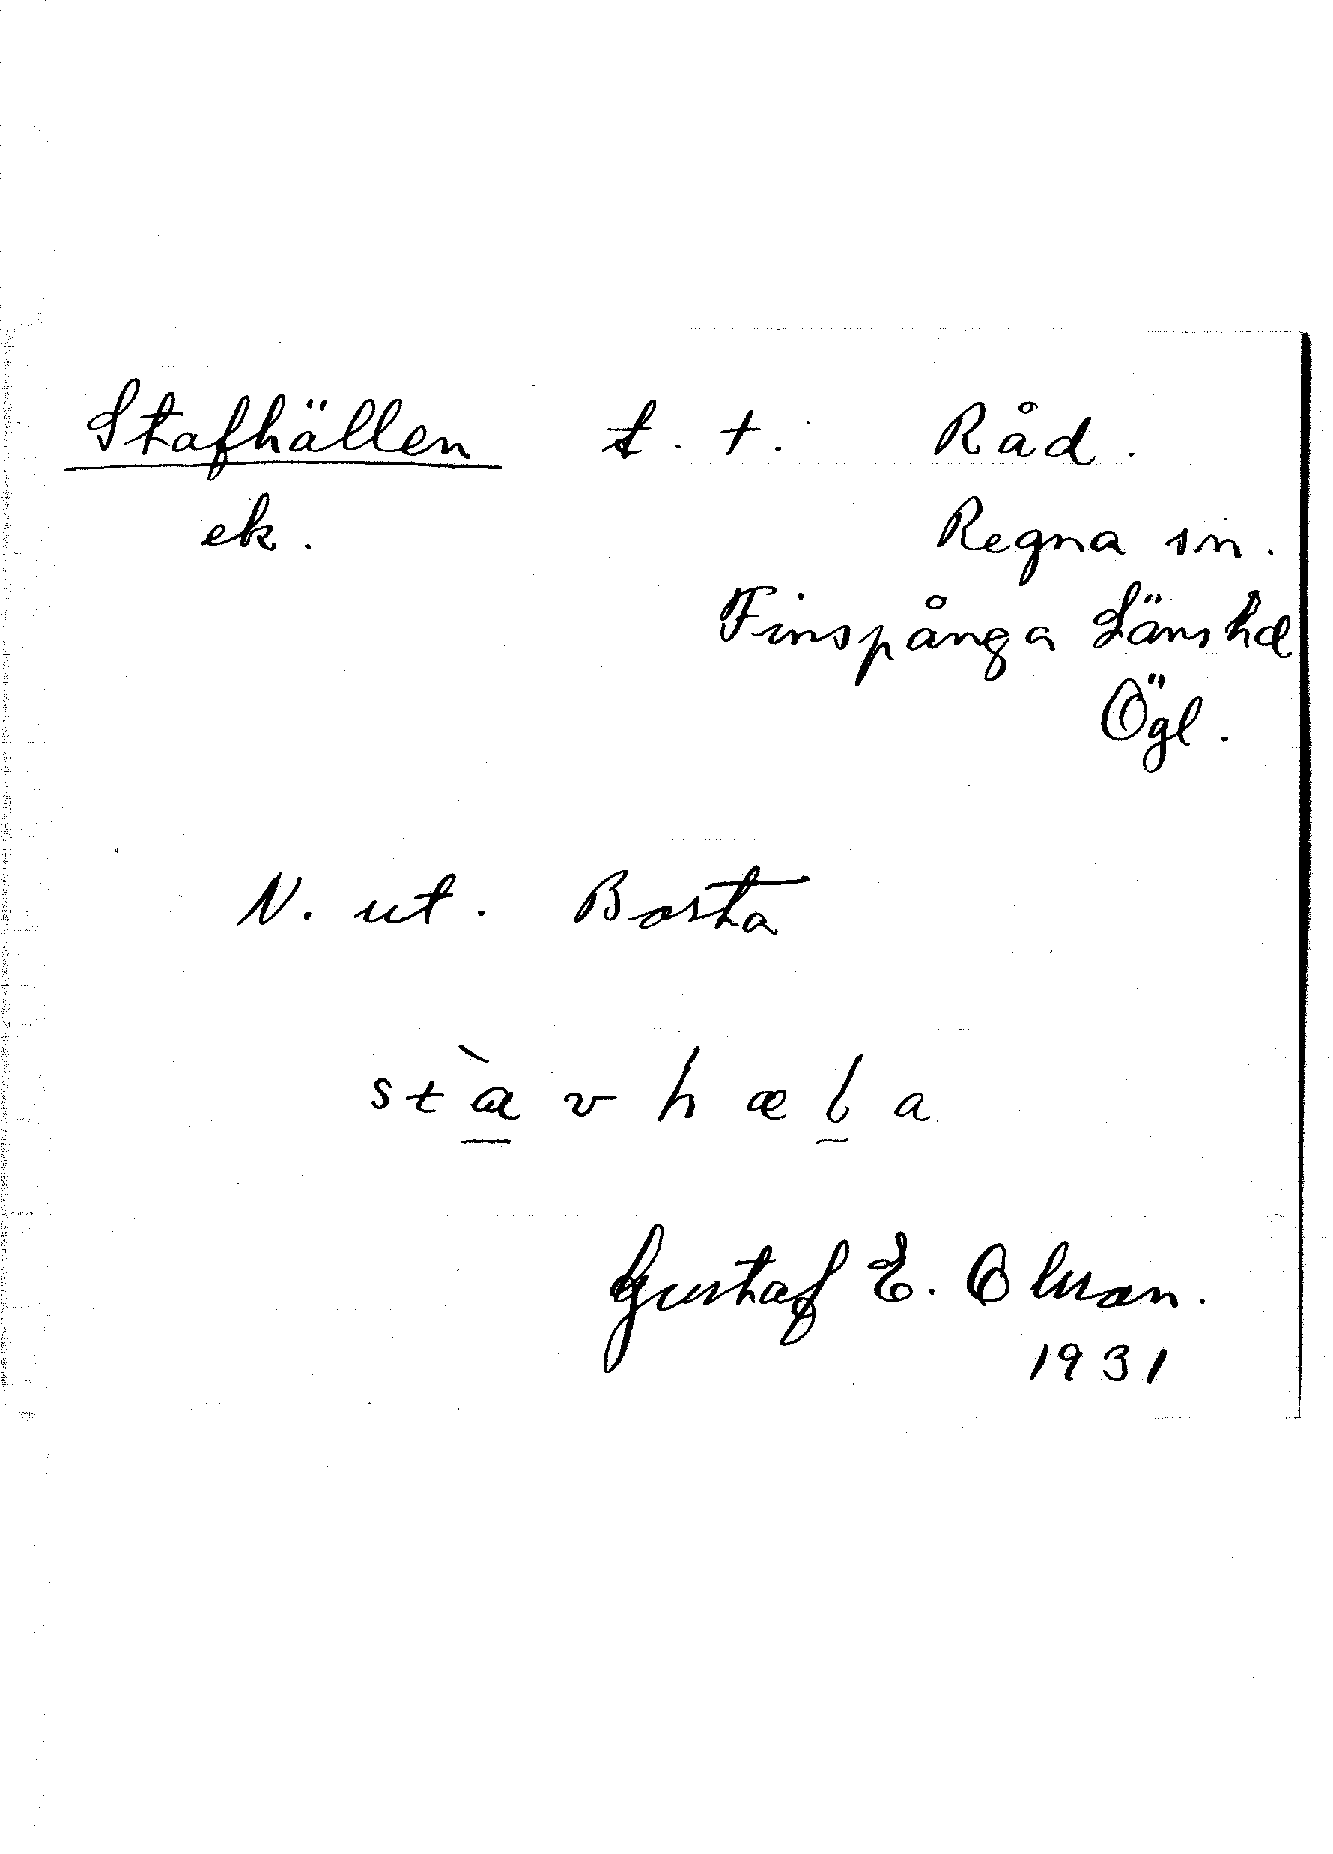 Stafhällen t. t. Råd.
ek. Regna sn.
Finspånga Länshd
Ögl.
N. ut. Bosta
stàvhæla
Gustaf E. Olsson.
1931